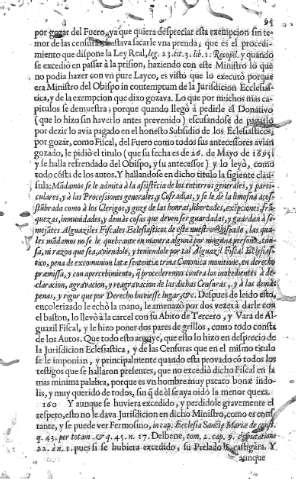 95
por gozar del Fuero, ya que quiera despreciar esta exempcion sin te-
mor de las censuras, bastava sacarle vna prenda, que es el procedi-
miento que dispone la Ley Real, leg. 23. tit. 3. lib. 1. Recopil. y quando
se excedió en passar à la prision, haziendo con este Ministro lo que
no podia hazer son vn pure Layco, es visto que lo executò porque
era Ministro del Obispo in contemptum de la Jurisdiccion Ecclesias-
tica, y de la exempcion que dixo gozava. Lo que por muchos mas ca-
pitulos se demuestra; porque quando llegò à pedirle el Donativo
(que lo hizo sin haverlo antes prevenido) escusandose de pagarlo
por dezir lo avia pagado en el honesto Subsidio de los Eclesiasticos,
por gozar, como Fiscal, del Fuero como todos sus antecessores avian
gozado, le pidiò el titulo (que su fecha es de 26. de Mayo de 1695.
y se halla refrendado del Obispo, y su antecessor) y lo leyò, como
todo costa de los autos. Y hallandose en dicho titulo la siguiente clau-
sula: Mãdamos se le admita à la assistencia de los entierros generales, y parti-
culares, y à las Processiones generales, y Cofradias, y se le dè la limosna acos-
tumbrada como à los Clerigos, y goze de las honras, libertades, exẽpciones, frã-
quezas, inmunidades, y demàs cosas que deven ser guardadas, y guardan à se-
mejãtes Alguaziles Fiscales Eclesiasticos de este nuestro Obispado, las qua-
les mãdamos no se le quebranten en manera alguna por ninguna persona, can-
sa, ni razon que sea, aviendole, y teniendole por tal Alguazil Fiscal Eclesias-
tico, pena de excomunion latæ sententiæ trina Canonica monitione, en derecho
præmissa, y con apercebimiento, q̃ procederemos contra los inobedientes à de-
claracion, agravacion, y reagravacion de dichas Censuras, y à las demàs
penas, y rigor que por Derecho huviesse lugar, &c. Despues de leido esto,
encolerizado lo echò la mano, quando por dos vezes à darle con
el baston, lo llevò à la carcel con su Abito de Tercero, y Vara de Al-
guazil Fiscal, y le hizo poner dos pares de grillos, como todo consta
de los Autos. Que todo esto arguye, que esto lo hizo en desprecio de
la Jurisdicion Eclesiastica, y de las Censuras que en el mismo titulo
se le imponian, y principalmente quando està provado cõ todos los
testigos que se hallaron presentes, que no excediò dicho Fiscal en la
mas minima palabra, porque es vn hombre muy pacato bonæ indo-
lis, y muy querido de todos, sin q̃ de èl se aya oido la menor quexa.
160 Y aunque se huviera excedido, y perdidole gravemente el
respeto, esto no le dava Jurisdicion en dicho Ministro, como es cons-
tante, y se puede ver Fermosino, in cap. Ecclesia Sanctæ Mariæ de const.
q. 43. per totam & q. 45. n. 17. Delbene, tom. 2. cap. 9.
22. n. 1. pues si se hubiera excedido, su Prelado le castigàra. Y
aunque